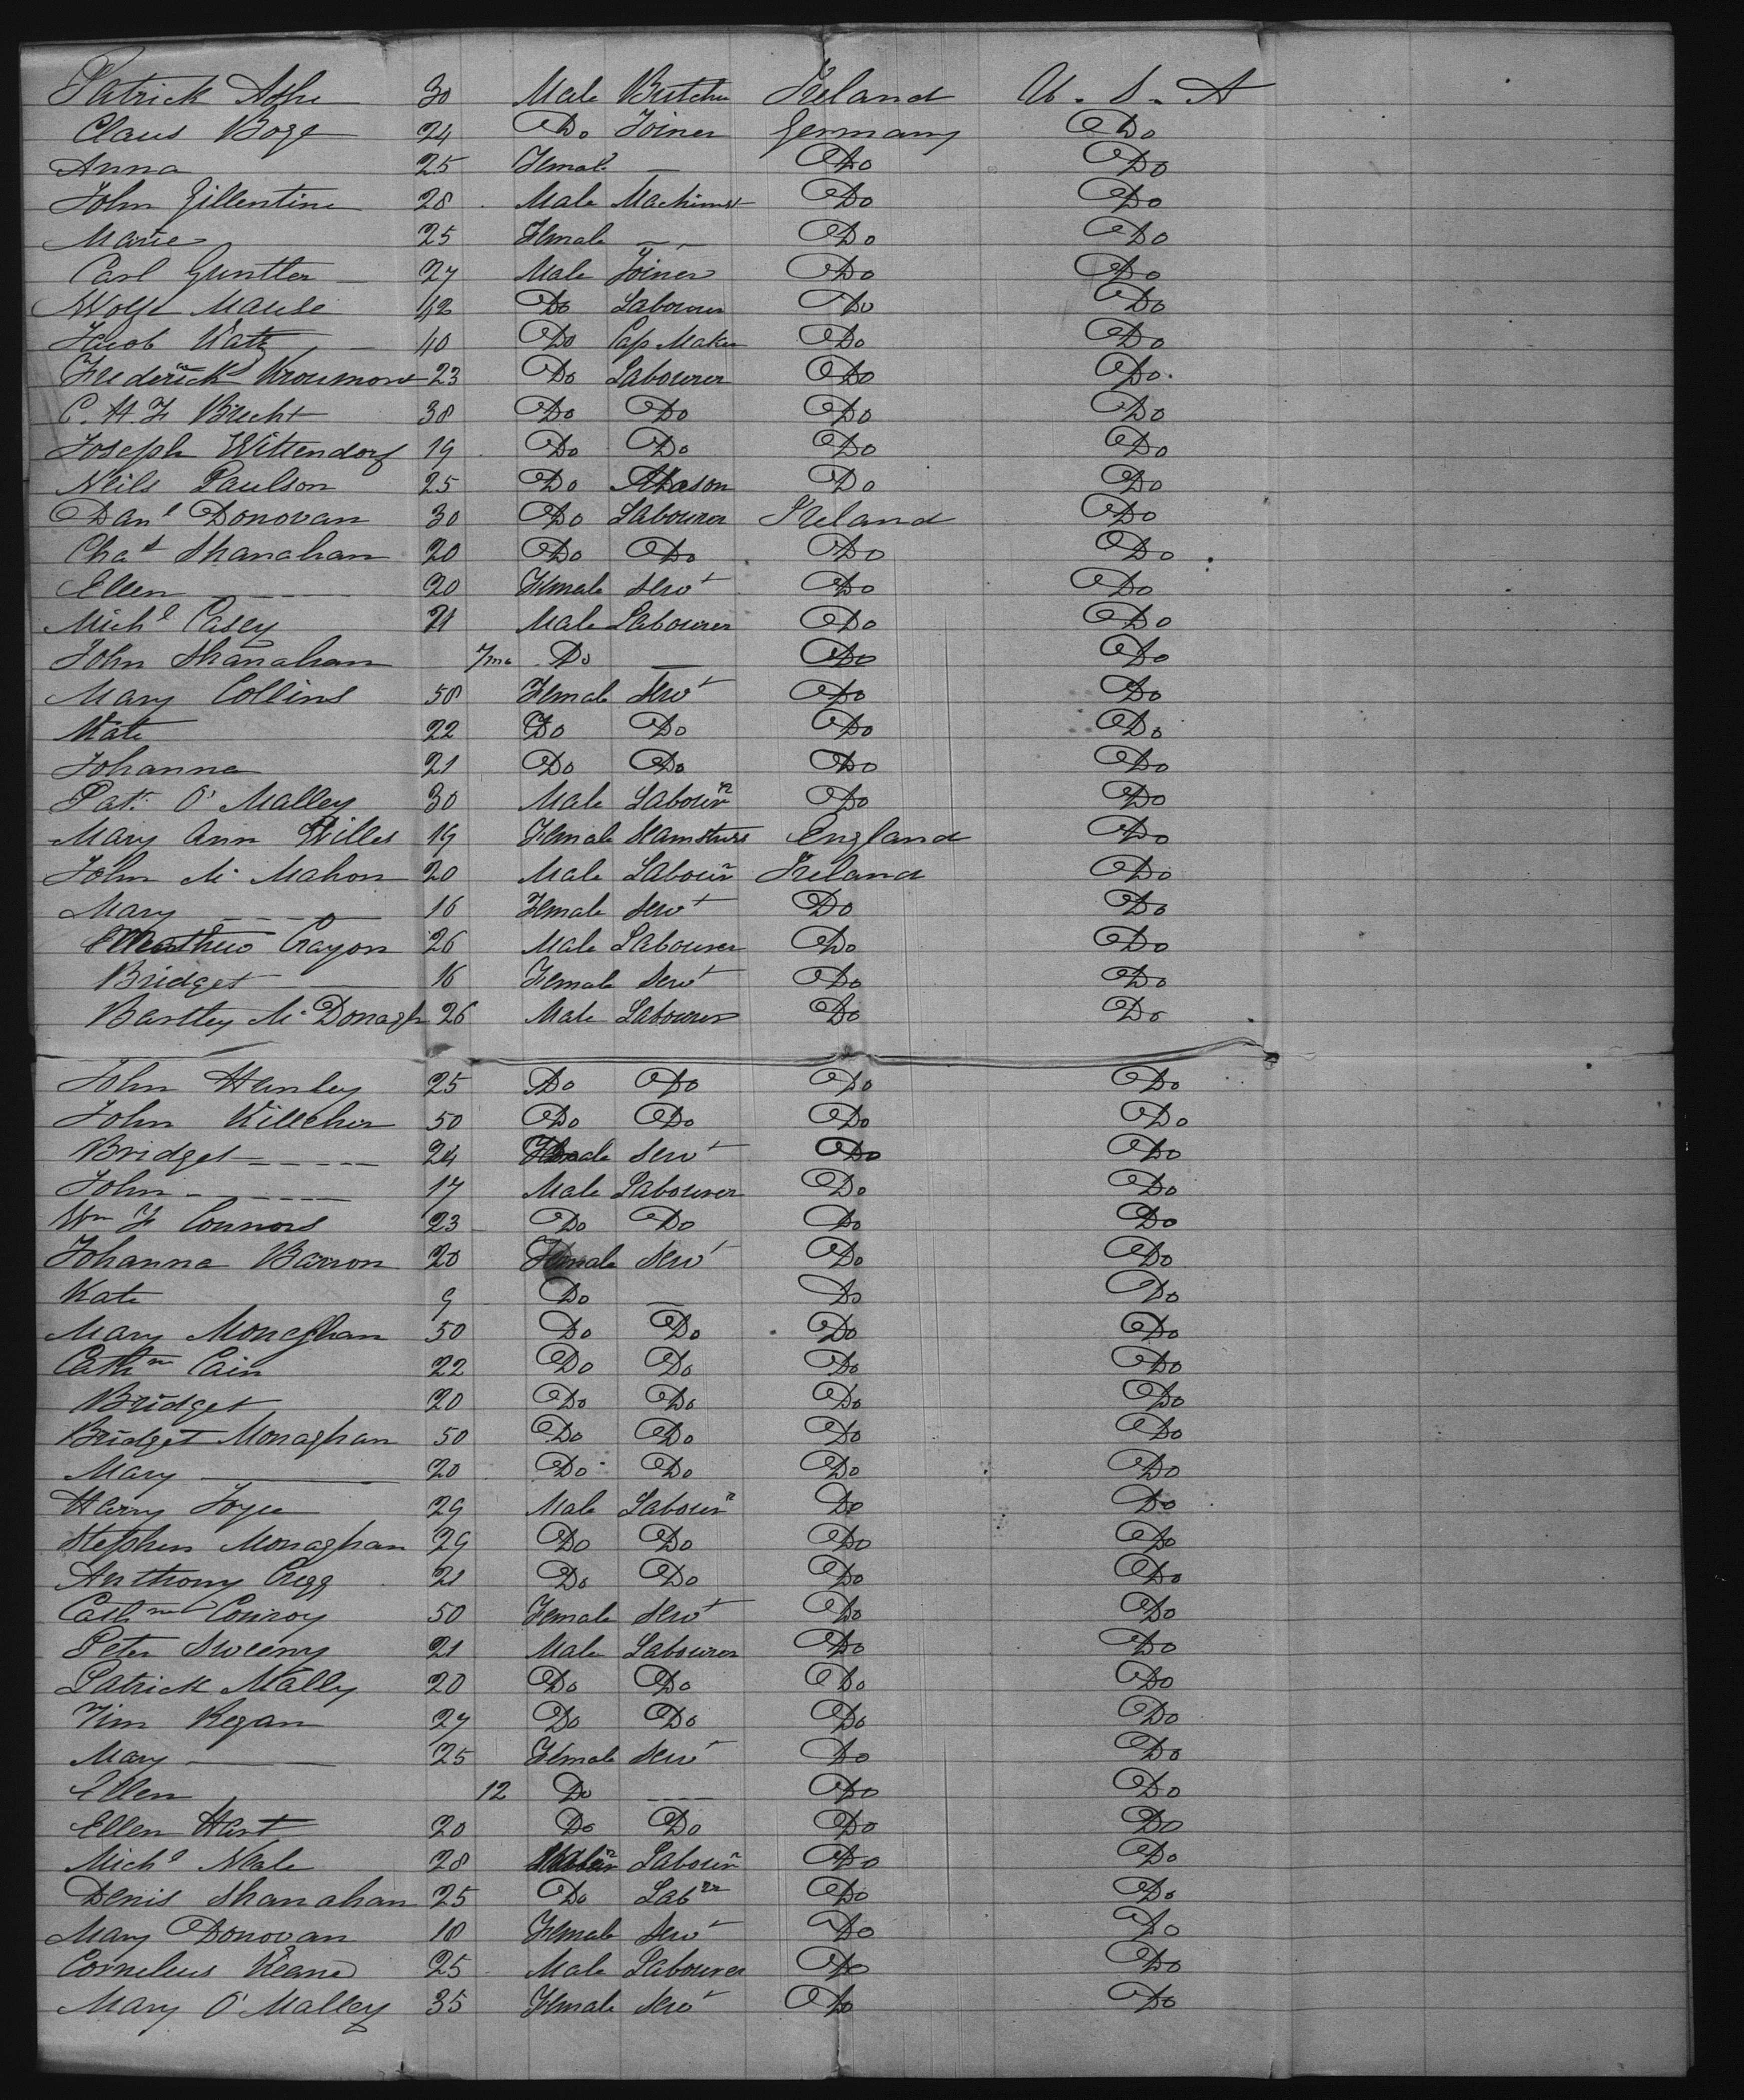 Patrick Ashe 30 Male Butcher Ireland U.S.A
Claus Boge 24 Do Joiner Germany Do
Anna 25 Female — Do Do
John Gillentine 28 Male Machinist Do Do
Marie 25 Female — Do Do
Carl Gunther 27 Male Joiner Do Do
Wolfe Mause 42 Do Labourer Do Do
Jacob Katz 40 Do Cap Maker Do Do
Frederick 23 Do Labourer Do Do
C. H. F Brecht 38 Do Do Do Do
Joseph Wittendorf 19 Do Do Do Do
Neils Paulson 25 Do Mason Do Do
Danl Donovan 30 Do Labourer Ireland Do
Chas Shanahan 20 Do Do Do Do
Ellen ---- 20 Female Servt Do Do
Michl Casey 21 Male Labourer Do Do
John Shanahan 7mo Do — Do Do
Mary Collins 50 Female Servt Do Do
Kate 22 Do Do Do Do
Johanna 21 Do Do Do Do
Patk O'Malley 30 Male Labourr Do Do
Mary Ann Willes 19 Female Seamstress England Do
John Mc Mahon 20 Male Labourr Ireland Do
Mary ---- 16 Female Servt Do Do
Matthew Crayon 26 Male Labourer Do Do
Bridget — 16 Female Servt Do Do
Bartley Mc Donagh 26 Male Labourer Do Do
John Hanley 25 Do Do Do Do
John Killeher 50 Do Do Do Do
Bridget ----- 24 Female Servt Do Do
John ----- 17 Male Labourer Do Do
Wm F Connors 23 Do Do Do Do
Johanna Barron 20 Female Servt Do Do
Kate 9 Do — Do Do
Mary Moneghan 50 Do Do Do Do
Cathne Cain 22 Do Do Do Do
Bridget 20 Do Do Do Do
Bridget Monaghan 50 Do Do Do Do
Mary — 20 Do Do Do Do
Harry Joyce 29 Male Labourr Do Do
Stephen Monaghan 29 Do Do Do Do
Anthony Cregg 21 Do Do Do Do
Cathne Conroy 50 Female Servt Do Do
Peter Sweeny 21 Male Labourer Do Do
Patrick Mally 20 Do Do Do Do
Tim Regan 27 Do Do Do Do
Mary — 25 Female Servt Do Do
Ellen 12 Do — Do Do
Ellen Hart 20 Do Do Do Do
Michl Neale 28 Labourr Do Do
Denis Shanahan 25 Do Labrr Do Do
Mary Donovan 18 Female Servt Do Do
Cornelius Keane 25 Male Labourer Do Do
Mary O'Malley 35 Female Servt Do Do